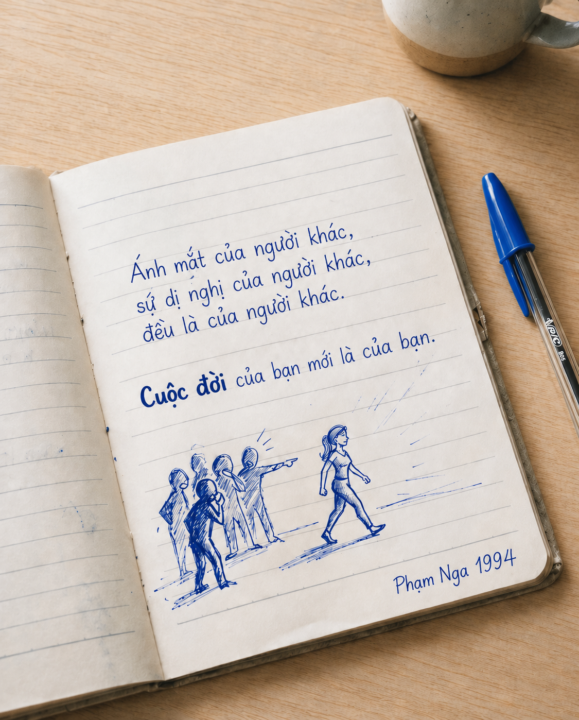 Ánh mắt của người khác,
sự dị nghị của người khác,
đều là của người khác.
Cuộc đời của bạn mới là của bạn.
Phạm Nga 1994